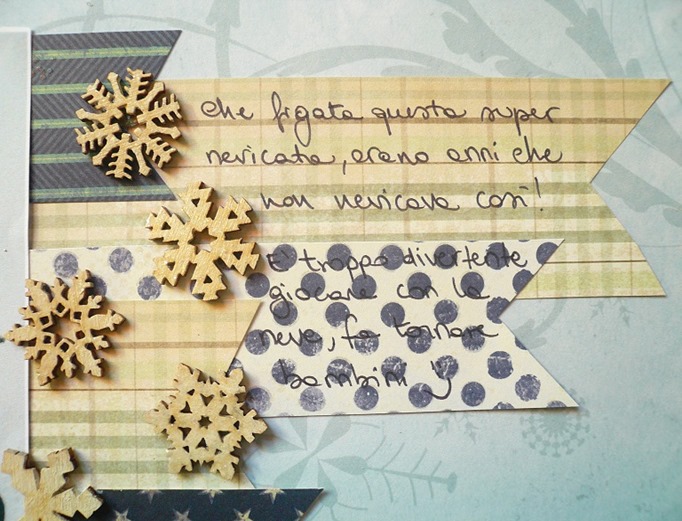 che figata questa super
nevicata, erano anni che
non nevicava così!
E' troppo divertente
giocare con la
neve, fa tornare
bambini :)